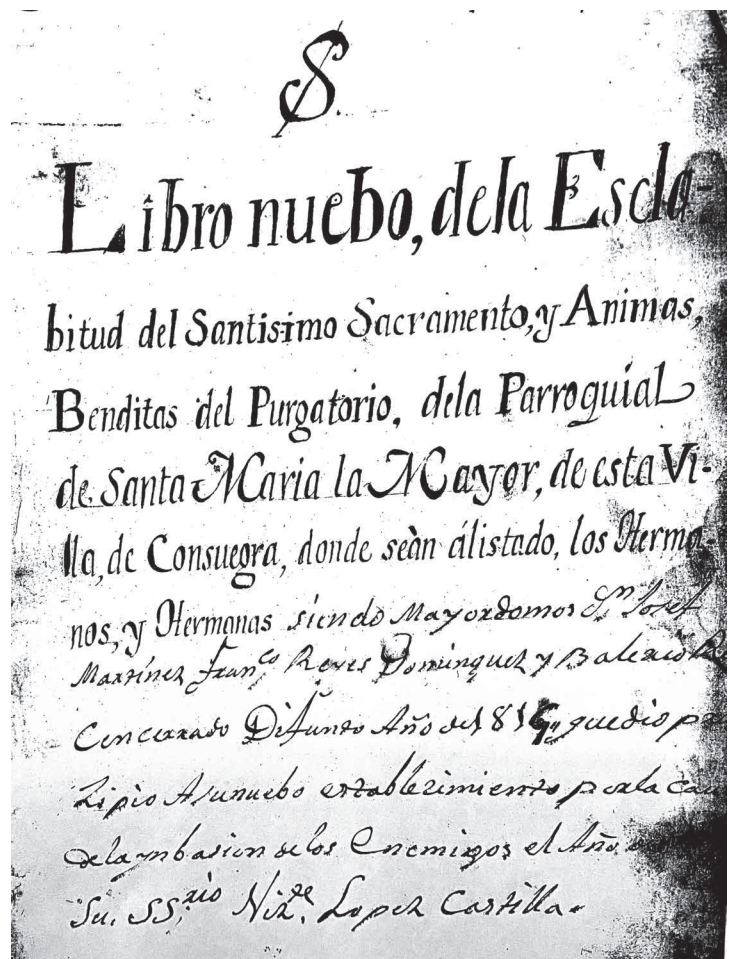 S.
Libro nuebo, dela Escla-
bitud del Santisimo Sacramento, y Animas,
Benditas del Purgatorio, dela Parroquial
de Santa Maria la Mayor, de esta Vi-
lla, de Consuegra, donde seàn álistado, los Herma-
nos, y Hermanas siendo Mayordomos Josef
Martinez Fran,co Reyes Dominguez y Balerio
Cencerrado Difunto Año del 81 quedio
Zipio Asunuebo establezimiento por la
delaynbasion de los Enemigos el Año
Su. SS,rio Lopez Castilla.